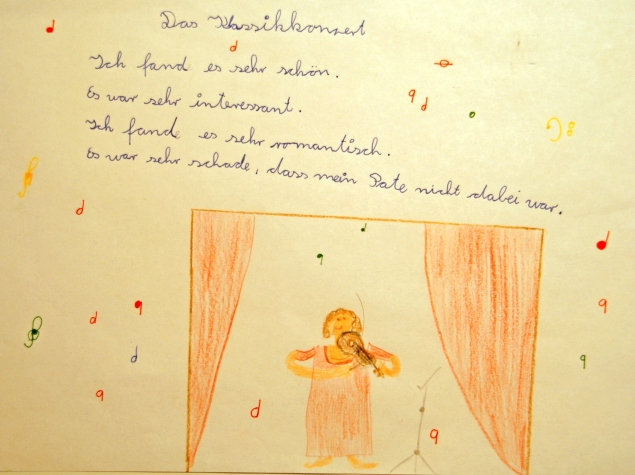 Das Klassikkonzert
Ich fand es sehr schön.
Es war sehr interessant.
Ich fand es sehr romantisch.
Es war sehr schade, dass mein Pate nicht dabei war.